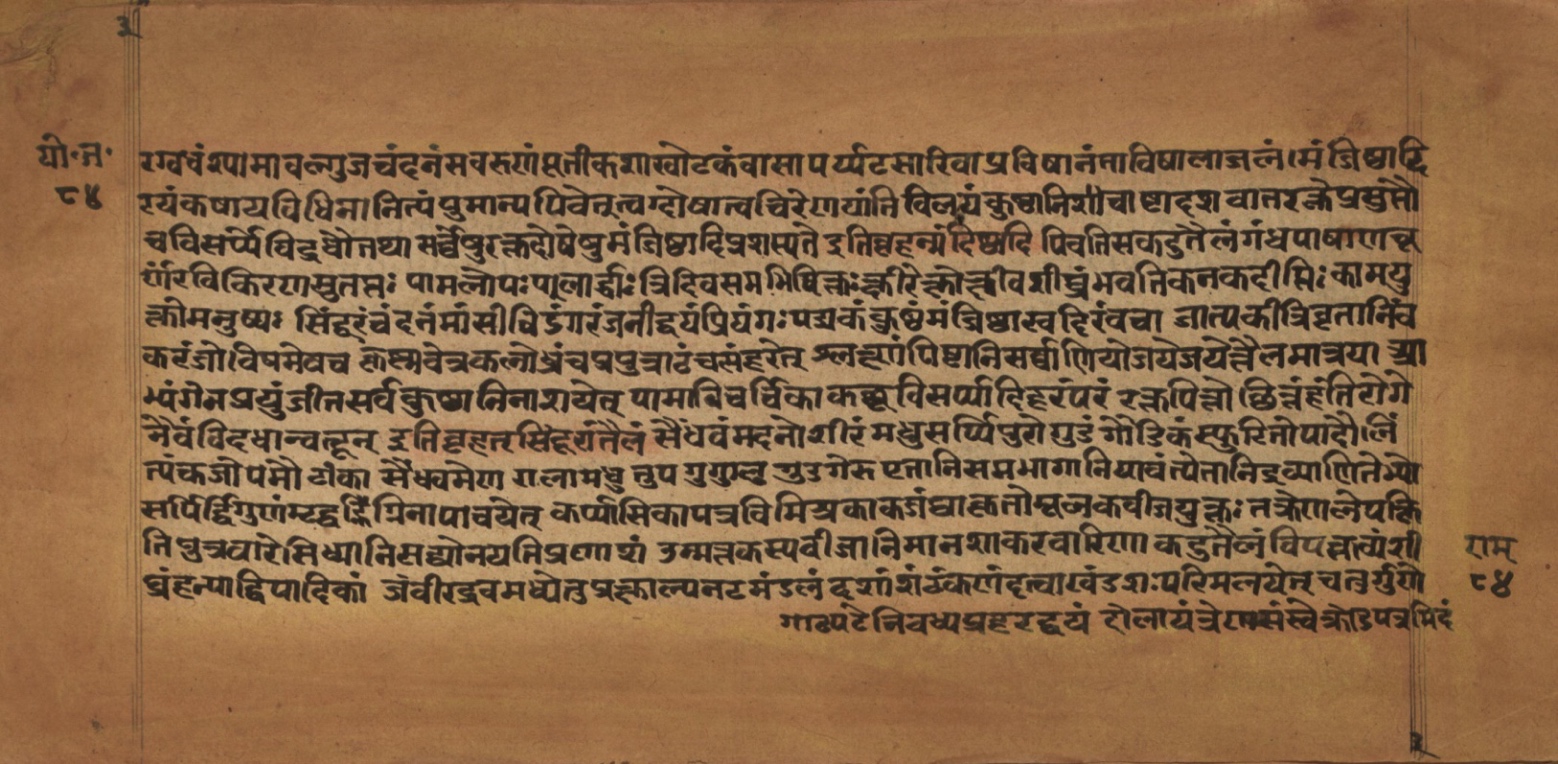 यो॰त॰
८४
रग्वधंश्यामावल्गुजचंदनंसवरुणंपूतीकशाखोटकंवासापर्प्पटसारिवाप्रविषानंताविषालाजलं।मंजिष्ठादि
रयंकषायविधिनानित्यंपुमान्यपिवेत्त्वग्दोषात्वचिरेणयांनि विलयंकुष्ठानिशाचाष्टादश वातरक्तेप्रसुप्तौ
चविसर्प्पेविद्रधौतथा सर्वेषुरक्तदोषेषुमंजिष्ठादिप्रशस्यते इतिवृहन्मंजिष्ठादि पिवतिसकटुतैलंगंधपाषाणचू
र्णंरविकिरणसुतप्तः पामलोपःपलार्द्धाःत्रिदिवसमभिषिक्तःक्षीरैक्तोक्षीवशीघ्रंभवतिकनकदीप्तिःकामयु
क्तोमनुष्यः सिंदूरंचंदनंमांसीविडंगरंजनीद्वयंप्रियंगःपद्मकंकुष्ठंमंजिष्ठाखदिरंवचा जात्पर्कीत्रिवृतानिंव
करंजो।विषमेवच ह्लेस्मवेत्रकलोध्रंचप्रपुन्नाटंचसंहरेत् श्लक्ष्णंपिष्टानिसर्वाणियोजयेजयेत्तैलमात्रया आ
भ्यंगेनप्रयुंजीतसर्वकुष्ठानिनाशयेत् पामाविचर्चिकाकछूविसर्प्पादिहरंपरं रक्तपित्तोछित्नंहंतिरोगे
नैवंविदधान्वत्टून् इतिवृहत्सिंदूराद्यंतैलं सैंधवंमदनोशीरं मधुसर्प्पिपुरोगुडं गौडिकंस्फुरितोपादौ।लिं
त्पंकजौपमौ टीका सैंधवमेण रालामधु तुप गुगुल्व गुडगेरु एतानिसमभागानियावंत्पेतानिद्रव्याणितेभ्यो
सर्पिर्द्विगुणंम्टद्वग्निनापाचयेत् कर्प्पासिकापत्रविमिश्रकाकजंघाकृतोमूलकवीजयुक्तः तक्रेणलेपक्षि
तिपुत्रवारेसिध्यानिसद्योनयतिप्रणाशं उन्मत्तकस्यवीजानिमानशाकरवारिणा कटुतैलंविपक्तत्व्यंशी
घ्रंहन्याद्विपादिकां जंवीरद्रवमध्येतुप्रक्षाल्पनटमंडलं दशांशंटंकणंदृत्वाखंडशःपरिमलयेत् चतुर्गुणे
गाढपटेनिवध्यप्रहरद्वयं दोलायंत्रेणसंस्वेक्रोडपत्रमिदं
राम्
८४